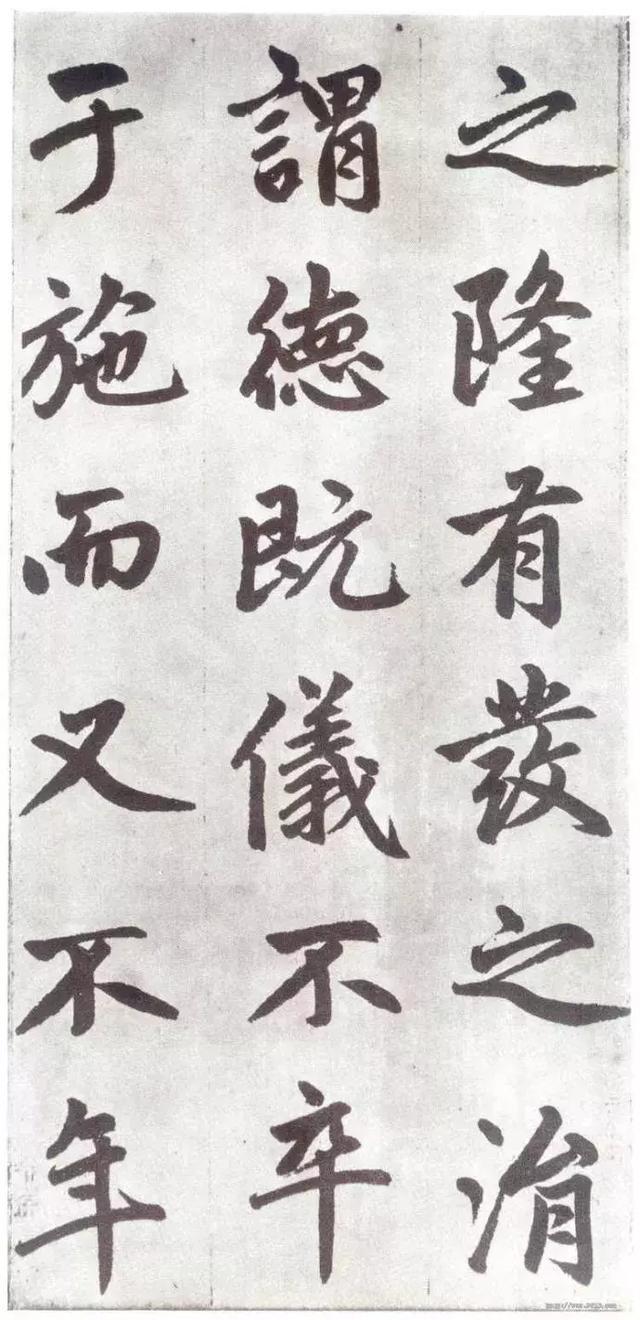 之隆有發之
謂德既儀不卒
于施而又不年